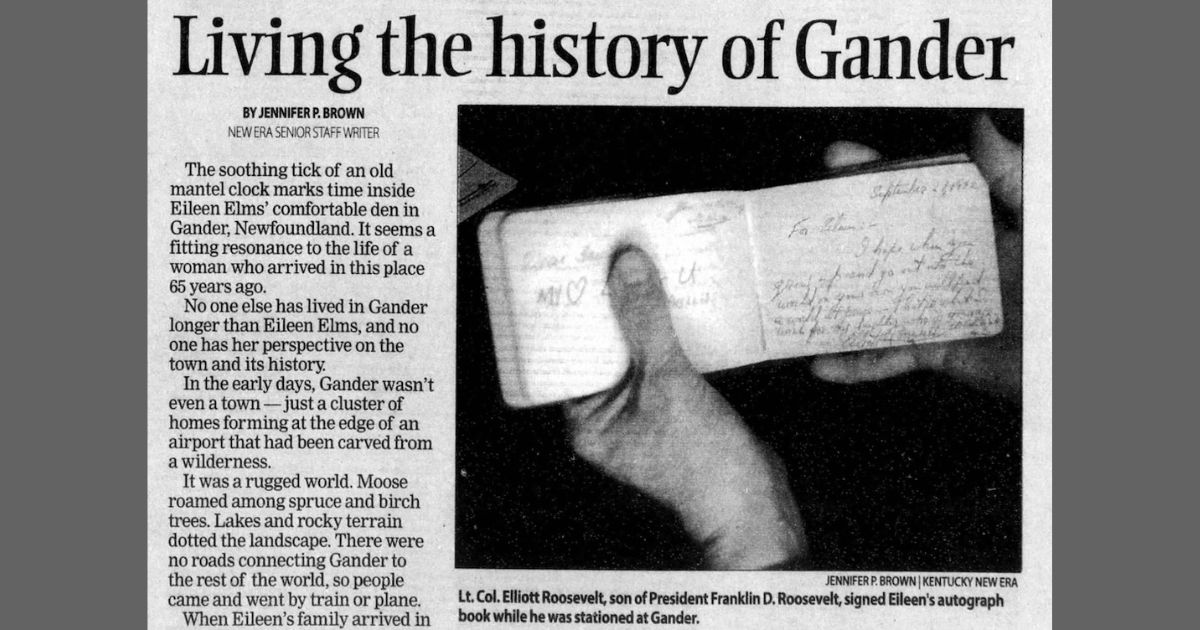 Living the history of Gander
BY JENNIFER P. BROWN
NEW ERA SENIOR STAFF WRITER
The soothing tick of an old
mantel clock marks time inside
Eileen Elms' comfortable den in
Gander, Newfoundland. It seems a
fitting resonance to the life of a
woman who arrived in this place
65 years ago.
No one else has lived in Gander
longer than Eileen Elms, and no
one has her perspective on the
town and its history.
In the early days, Gander wasn't
even a town — just a cluster of
homes forming at the edge of an
airport that had been carved from
a wilderness.
It was a rugged world. Moose
roamed among spruce and birch
trees. Lakes and rocky terrain
dotted the landscape. There were
no roads connecting Gander to
the rest of the world, so people
came and went by train or plane.
When Eileen's family arrived in
September
For Eileen:-
I hope when you
grow up and go out into the
JENNIFER P. BROWN | KENTUCKY NEW ERA
Lt. Col. Elliott Roosevelt, son of President Franklin D. Roosevelt, signed Eileen's autograph
book while he was stationed at Gander.